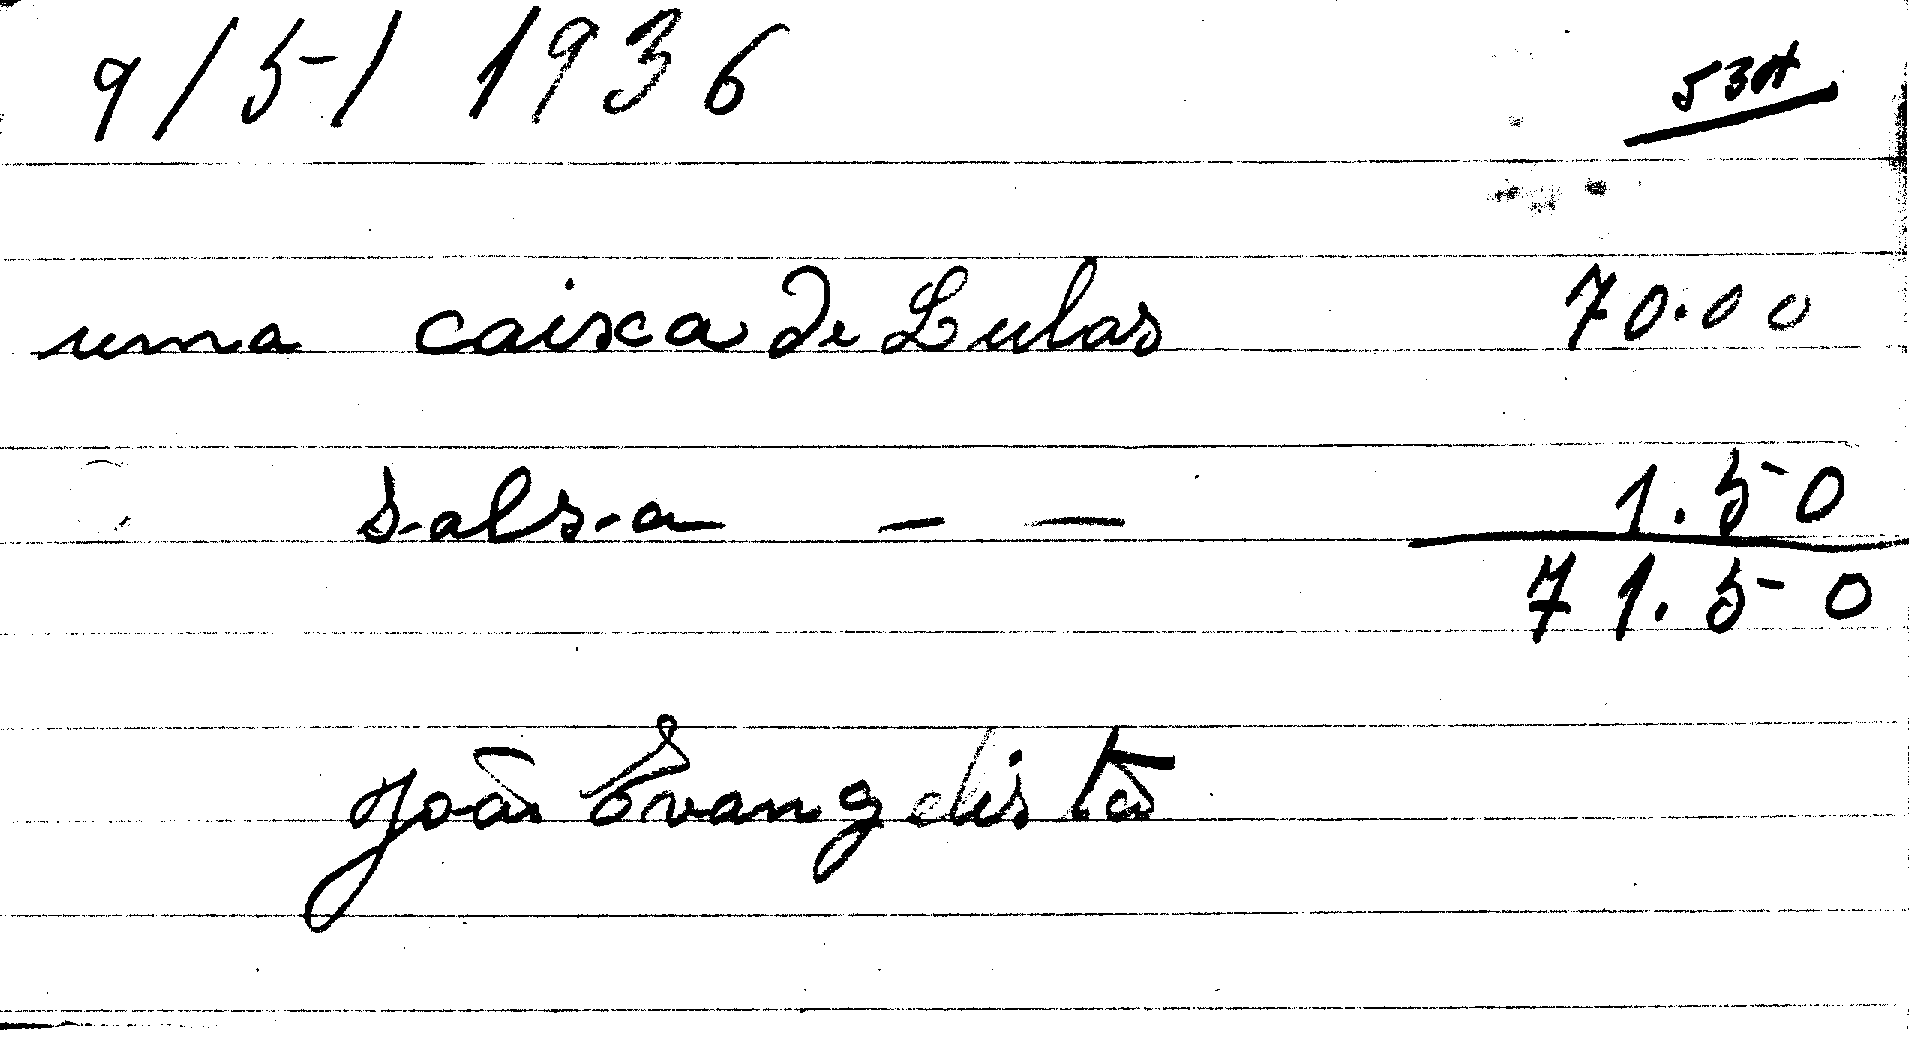 9/5/1936
uma caixa de Lulas 70.00
salsa — — 1.50
71.50
João Evangelista